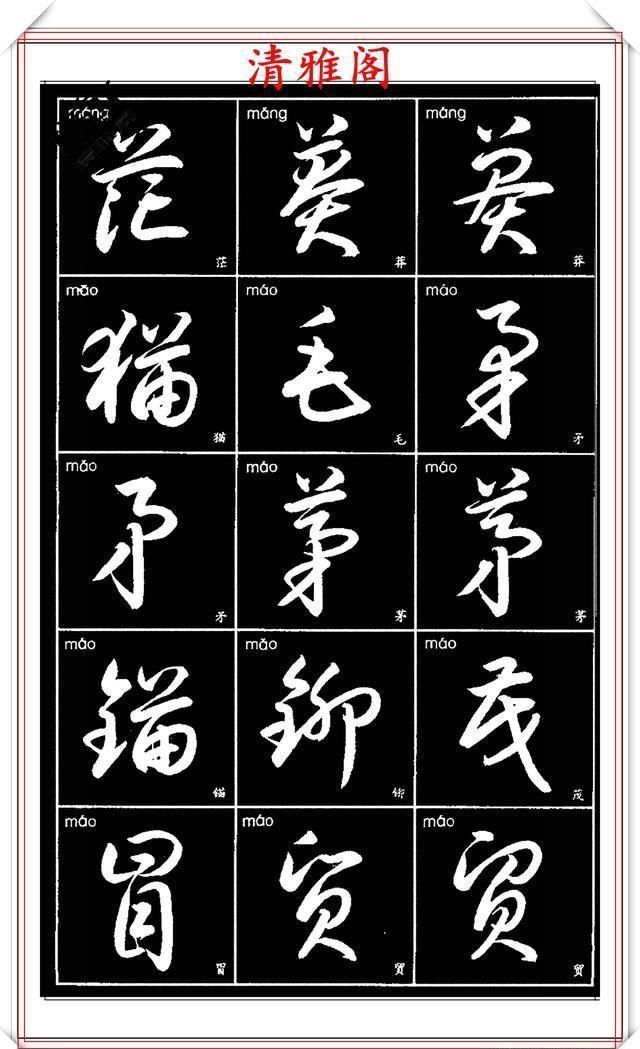 清雅阁
máng mǎng mǎng
茫 莽 莽
茫 莽 莽
māo máo máo
猫 毛 矛
猫 毛 矛
máo máo máo
矛 茅 茅
矛 茅 茅
máo mǎo máo
锚 铆 茂
锚 铆 茂
máo máo máo
冒 贸 贸
冒 贸 贸